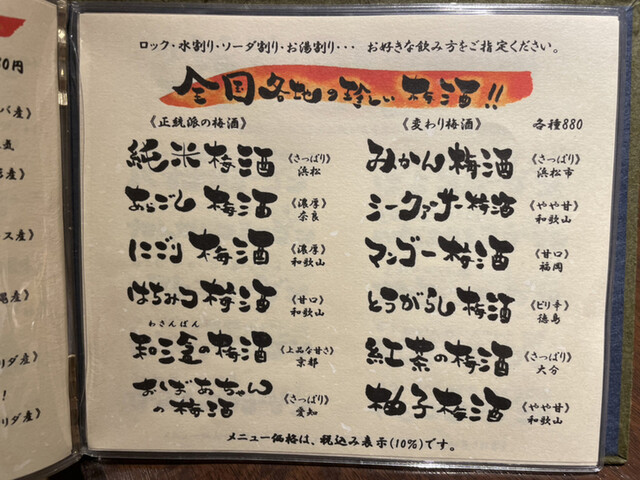 ロック・水割り・ソーダ割り・お湯割り・・・ お好きな飲み方をご指定ください。
全国各地の珍しい梅酒!!
《正統派の梅酒》
純米梅酒 《さっぱり》 浜松
あらごし梅酒 《濃厚》 奈良
にごり梅酒 《濃厚》 和歌山
はちみつ梅酒 《甘口》 和歌山
わさんぼん
和三盆の梅酒 《上品な甘さ》 京都
おばあちゃん
の梅酒 《さっぱり》 愛知
《変わり梅酒》 各種880
みかん梅酒 《さっぱり》 浜松市
シークァーサー梅酒 《やや甘》 和歌山
マンゴー梅酒 《甘口》 福岡
とうがらし梅酒 《ピリ辛》 徳島
紅茶の梅酒 《さっぱり》 大分
柚子梅酒 《やや甘》 和歌山
メニュー価格は、税込み表示(10%)です。